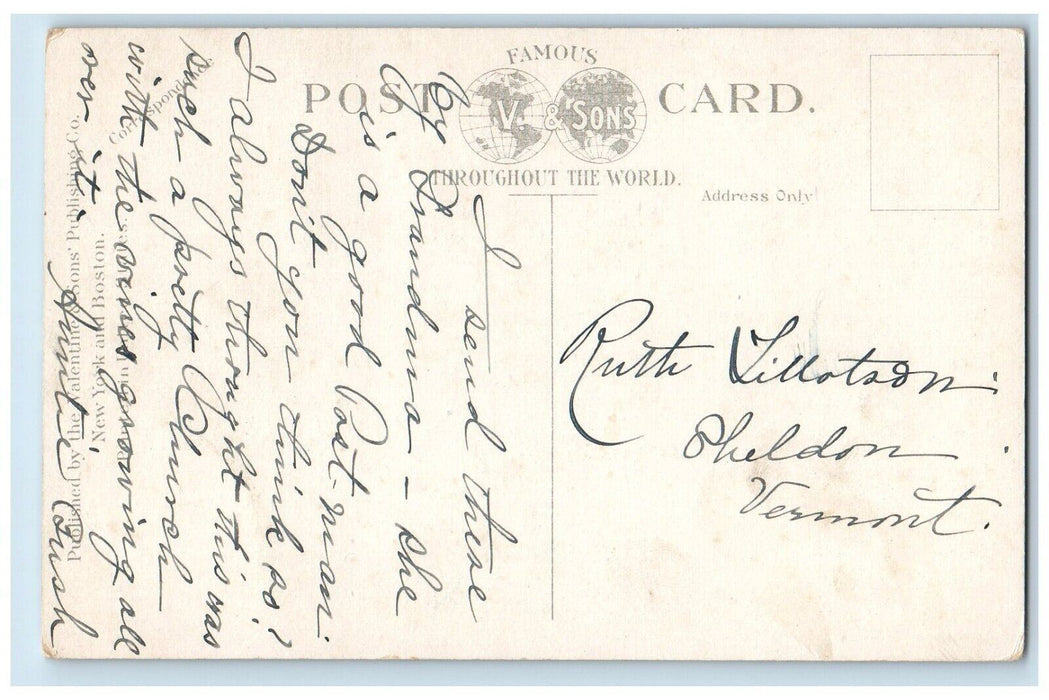 FAMOUS
POST CARD.
V. & SONS
THROUGHOUT THE WORLD.
Address Only
Published by the Valentine & Sons' Publishing Co.
New York and Boston.
I send these
By Grandma - she
is a good Post-man.
Don't you think so?
I always thought this was
such a pretty Church
with the vines growing all
over it.
Auntie
Ruth Tillotson.
Sheldon
Vermont.